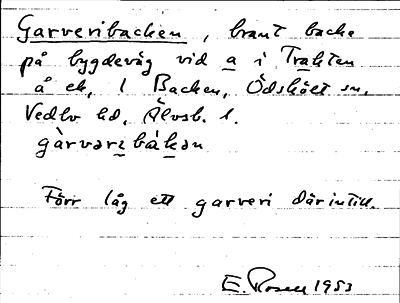 Garveribacken, brant backe
på bygdeväg vid a i Trakten
å ek, 1 Backen, Ödskölt sn,
Vedbo hd, Älvsb. l.
gàrvəri̲bák̲ən
Förr låg ett garveri därintill.
E. Rosell 1953